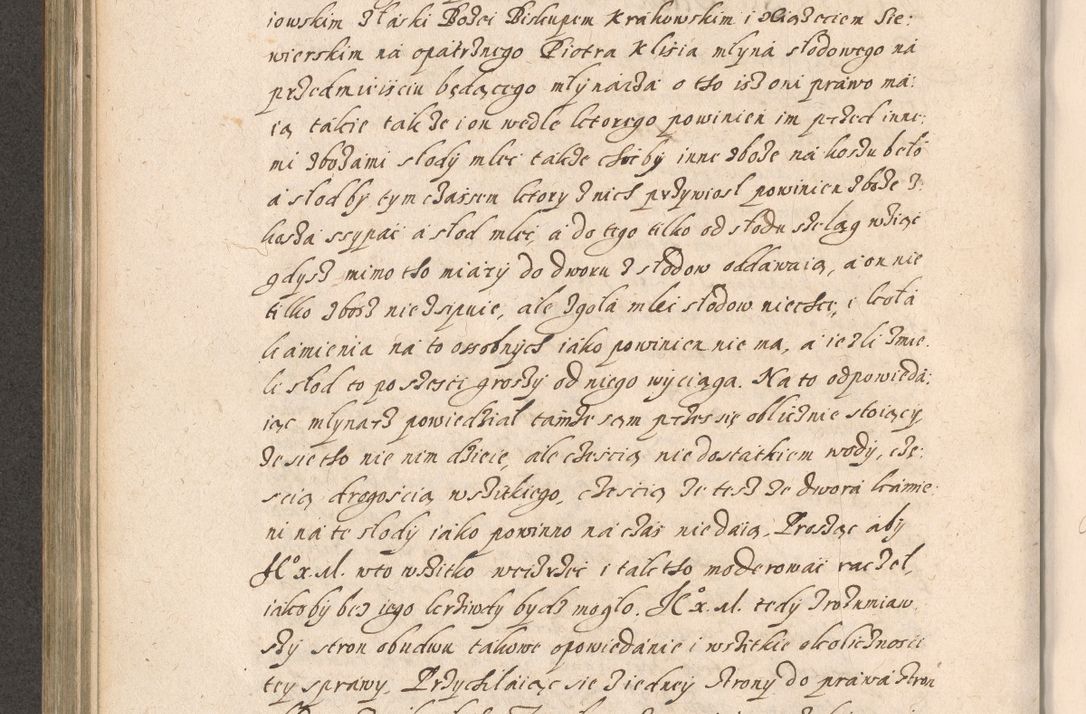 iowskim z łaski Bożei Biskupem Krakowskim i Xiążęciem Sie:
wierskim na opatrznego Piotra Klisia mlyna słodowego na
przedmieisciu będącego młynarza o tho isz oni prawo ma:
ią takie takze i on wedle ktorego powinien im przed inne:
mi zbożami slody mlec także choćby inne zboże na koszu beło
a słod by tym czassem ktory z nich przywiosl powinien zboże z:
kosza ssypać a slod mlec, a do tego tilko od słodu szeląg wziąc
gdysz mimo tho miary do dworu z słodow oddawaią, a on nie
tilko zboż nie zsipuie, ale zgola mlec slodow niechce, i koła
kamienia na to ossobnych iako powinien nie ma, a iezli zmie.
le slod to po szesci groszy od niego wyciąga. Na to odpowieda:
iąc mlynarz powiedział tamże sam przes się oblicznie stoiący,
ze sie tho nie nim dzieie, ale cżescią niedostatkiem wody, cżę:
scią drogoscią wszitkiego, cżescią ze tesz ze dwora kamie:
ni na te slody iako powinno na czas nie daią. Prosząc aby
Jº. x. M. w to wszitko weżrzeć i tak tho moderować raczel,
iakoby bez iego krziwdy bydz moglo. Jº. x. M. tedy zrozumiaw.
szy stron obudwu takowe opowiedanie i wszitkie okolicznosci
tey sprawy, Przychilaiąc sie z iedney strony do prawa stron